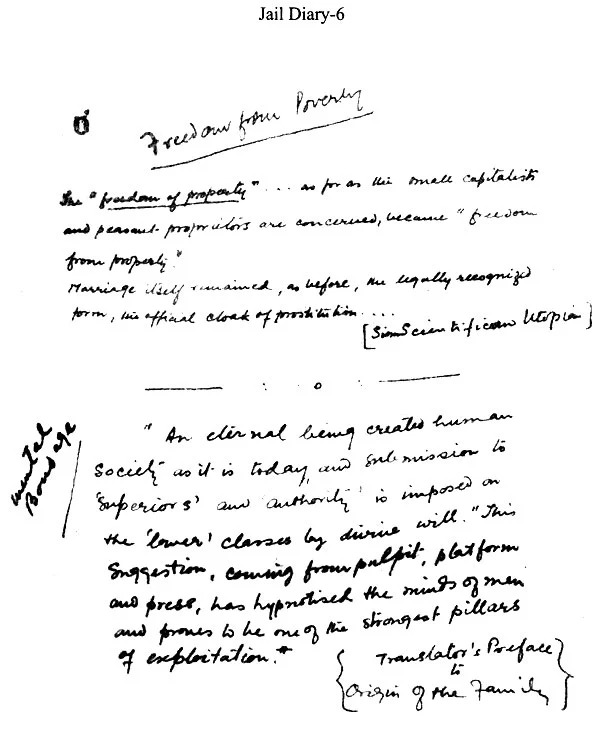 Jail Diary-6
Freedom from Poverty
The "freedom of property" ... as far as the small capitalists
and peasant proprietors are concerned, became "freedom
from property."
Marriage itself remained, as before, the legally recognized
form, the official cloak of prostitution ....
Utopian]
mental
Bondage
"An eternal being created human
Society as it is today, and submission to
'superiors' and 'authority' is imposed on
the 'lower' classes by divine will." This
suggestion, coming from pulpit, platform
and press, has hypnotised the minds of men
and proves to be one of the strongest pillars
of exploitation."
{Translator's Preface
to
Origin of the Family}